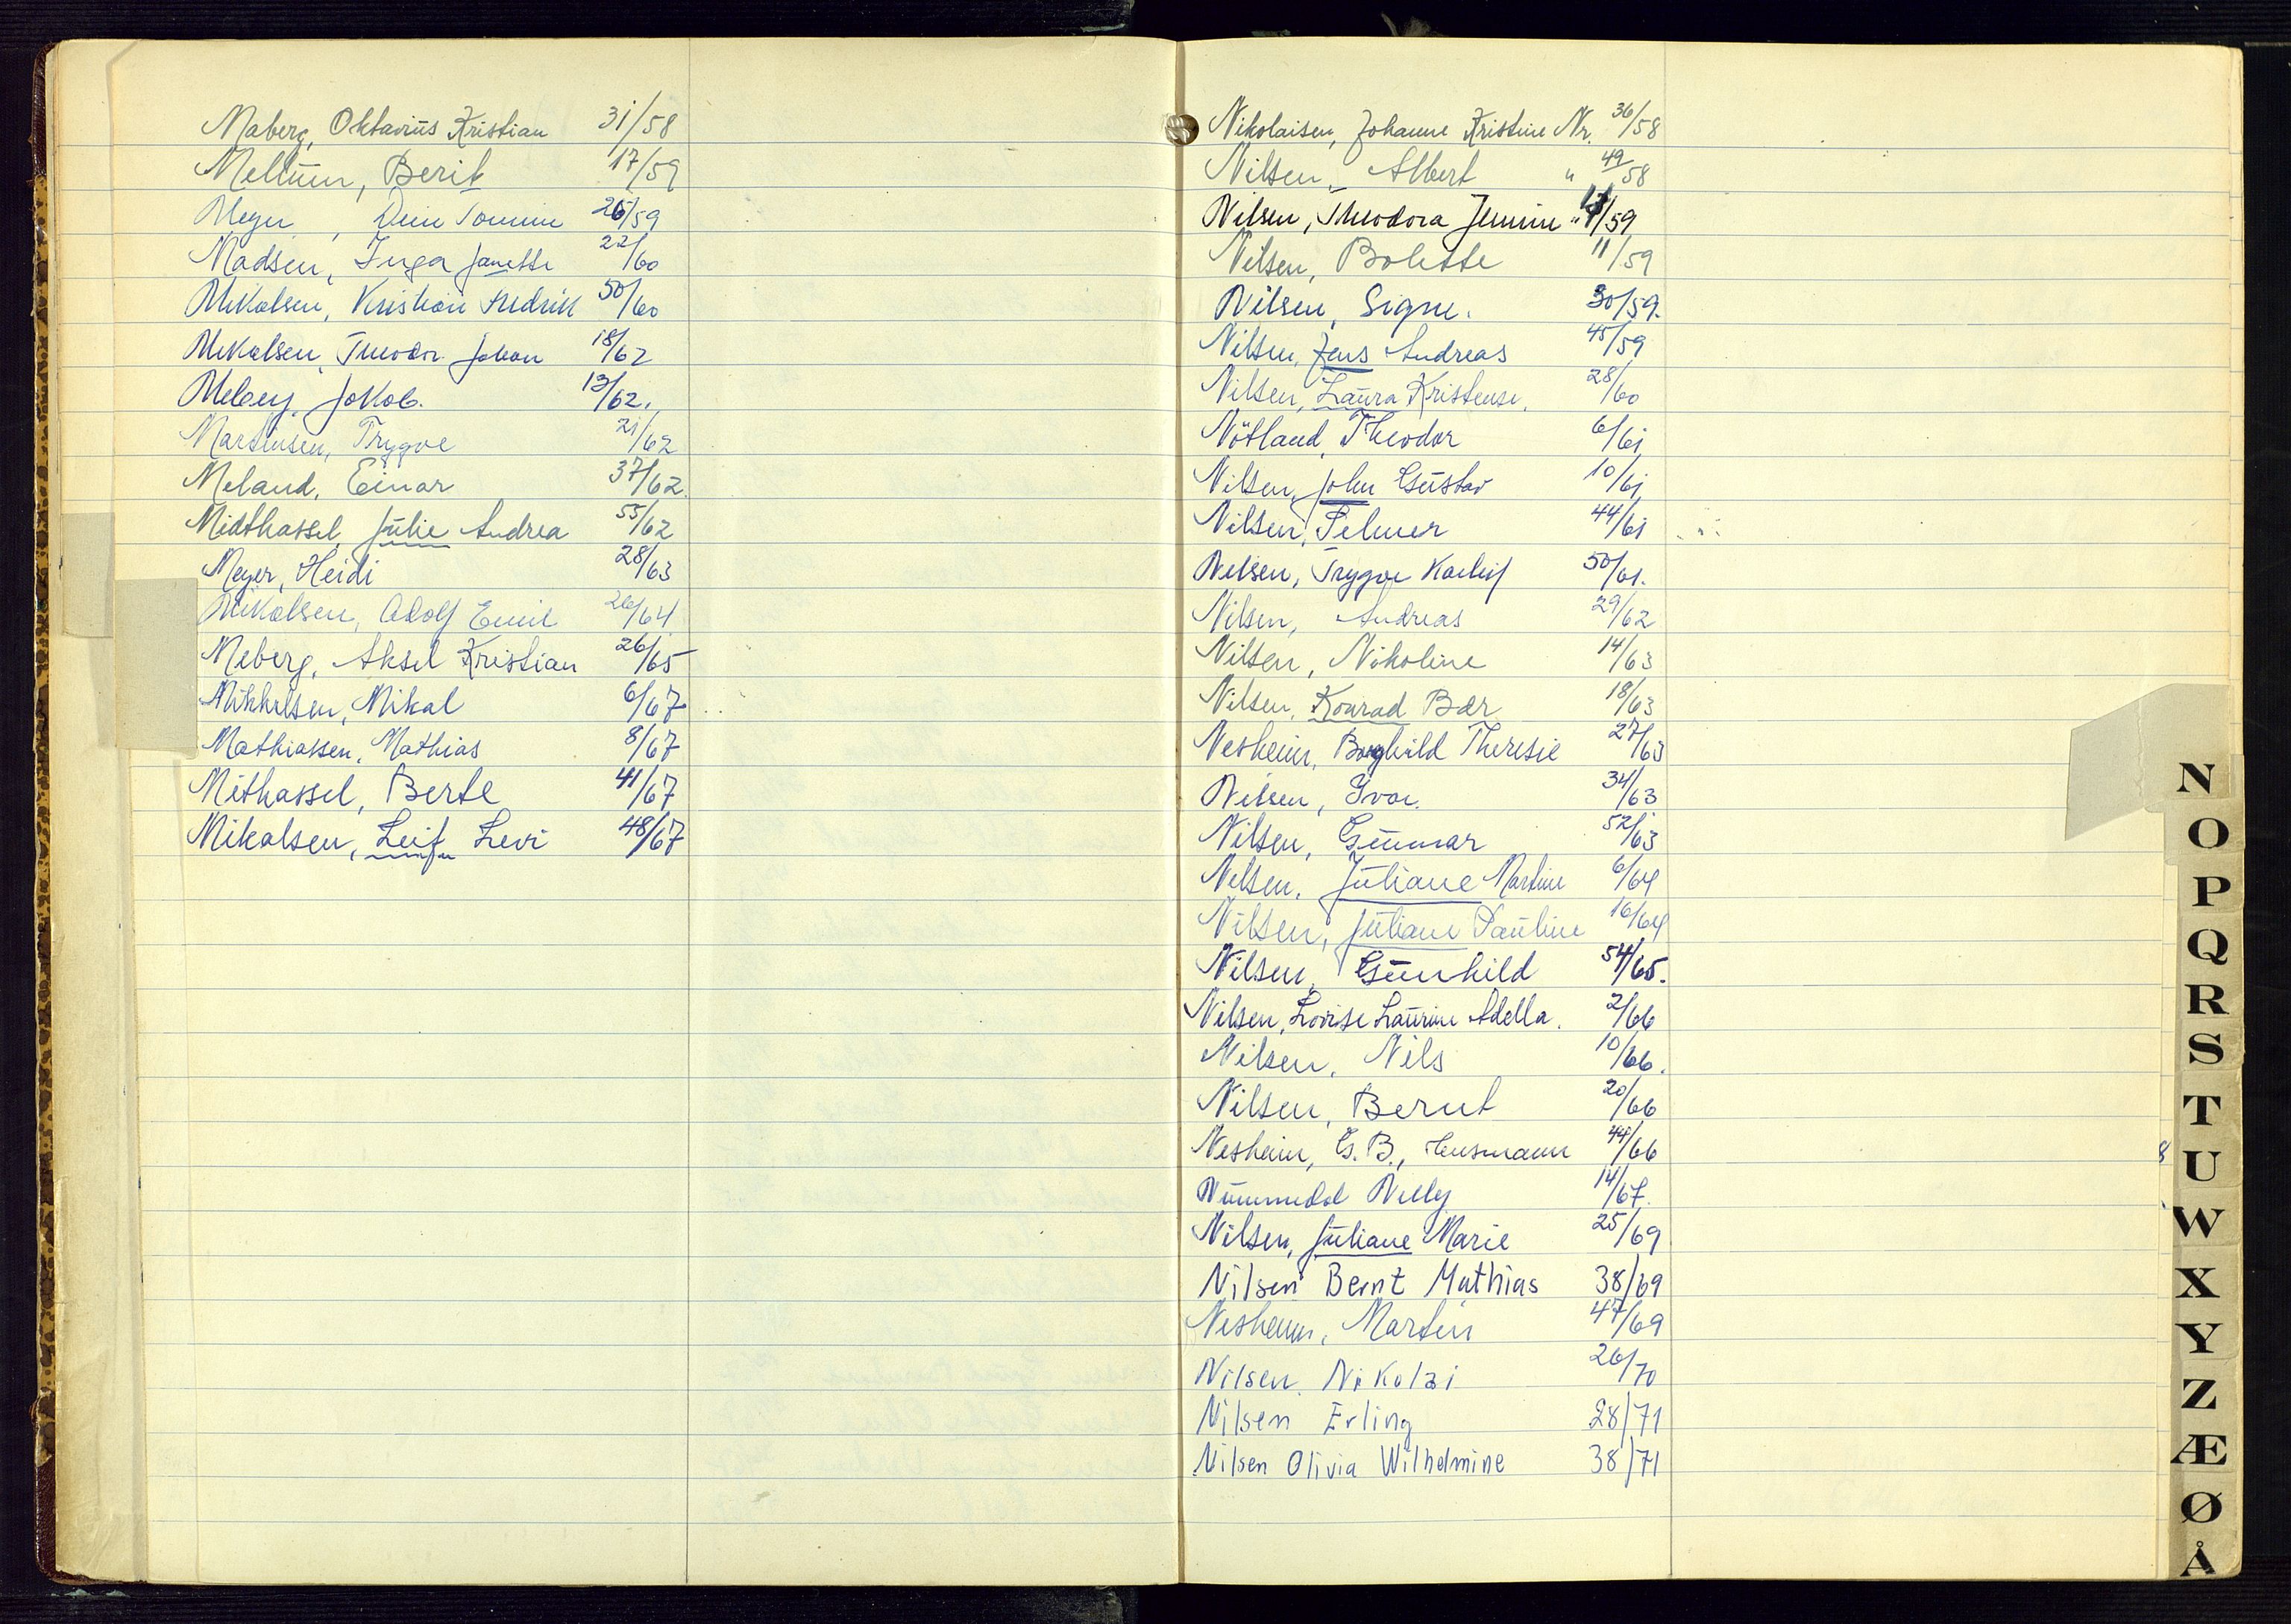 Maberg, Oktavius Kristian 31/58
Mellum, Berit 17/59
Meyer, 26/59
Madsen, Inga Janette 22/60
Mikalsen, Kristian Fredrik 50/60
Mikalsen, Theodor Johan 18/62
Meberg, Jakob. 13/62.
Martinsen, Trygve 21/62
Meland, Einar 37/62.
Midthassel, Julie Andrea 55/62
Meyer, Heidi 28/63
Mikalsen, Adolf Emil 26/64
Meberg, Aksel Kristian 26/65
Mikkalsen, Mikal 6/67
Mathiassen, Mathias 8/67
Mithassel, Berte 41/67
Mikalsen, Leif Levi 48/67
Nikolaisen, Johanne Kristine Nr. 36/58
Nilsen, Albert " 49/58
Nilsen, Theodora Jemine " /59
Nilsen, Bolette 11/59
Nilsen, Signe. 30/59.
Nilsen, Jens Andreas 45/59
Nilsen, Laura Kristense. 28/60
Nötland, Theodor 6/61
Nilsen, John Gustav 10/61
Nilsen, Pelmer 44/61
Nilsen, Trygve Karluf 50/61.
Nilsen, Andreas 29/62
Nilsen, Nikoline 14/63
Nilsen, Konrad Bær 18/63
Nesheim, Borghild Theresie 27/63
Nilsen, Ivar. 34/63
Nilsen, Gunnar 52/63
Nilsen, Juliane Martine 6/64
Nilsen, Juliane Pauline 16/64
Nilsen, Gunhild 54/65.
Nilsen, Lovise Laurine Adella. 2/66
Nilsen, Nils 10/66.
Nilsen, Bernt 20/66
Nesheim, G. B., Husmann 44/66
Nummedal Nelly 14/67.
Nilsen, Juliane Marie 25/69
Nilsen Bernt Mathias 38/69
Nesheim, Martin 47/69
Nilsen, Nikolai 26/70
Nilsen Erling 28/71
Nilsen Olivia Wilhelmine 38/71
N
O
P
Q
R
S
T
U
W
X
Y
Z
Æ
Ø
Å